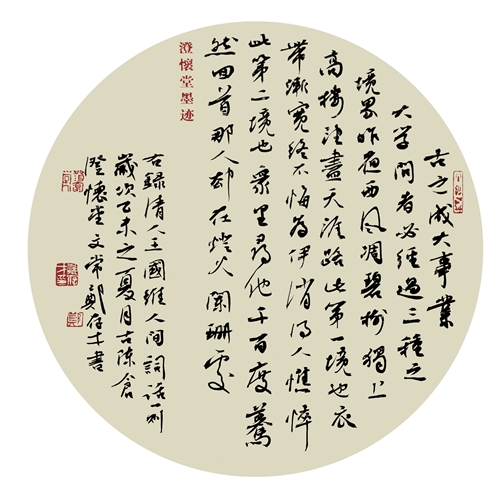 古之成大事業
大学问者必經過三種之
境界昨夜西风凋碧樹獨上
高楼望盡天涯路此第一境也衣
帶漸寬终不悔為伊消得人憔悴
此第二境也衆里尋他千百度驀
然回首那人却在燈火闌珊處
澄懷堂墨迹
右録清人王國維人间詞話一则
歲次乙未之夏月古陳倉
澄懷堂文常鄭存才書